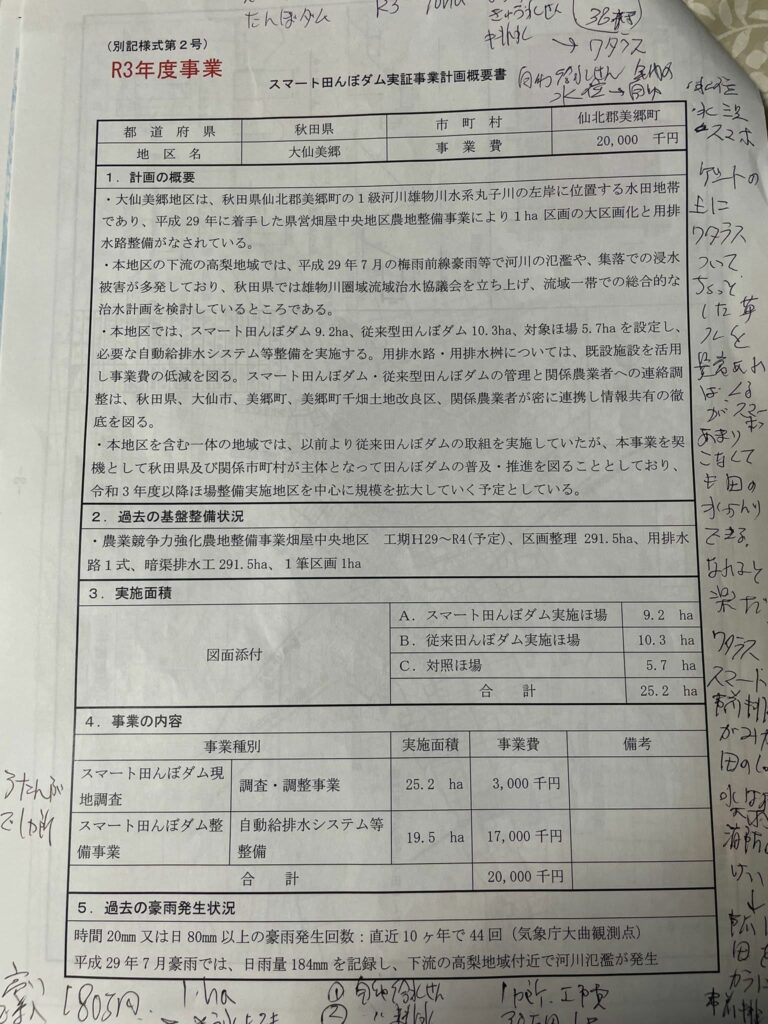 たんぼダム
R3
(別記様式第2号)
R3年度事業
スマート田んぼダム実証事業計画概要書
都道府県 秋田県 市町村 仙北郡美郷町
地区名 大仙美郷 事業費 20,000 千円
1．計画の概要
・大仙美郷地区は、秋田県仙北郡美郷町の1級河川雄物川水系丸子川の左岸に位置する水田地帯
であり、平成 29 年に着手した県営畑屋中央地区農地整備事業により1ha 区画の大区画化と用排
水路整備がなされている。
・本地区の下流の高梨地域では、平成 29 年 7 月の梅雨前線豪雨等で河川の氾濫や、集落での浸水
被害が多発しており、秋田県では雄物川圏域流域治水協議会を立ち上げ、流域一帯での総合的な
治水計画を検討しているところである。
・本地区では、スマート田んぼダム 9.2ha、従来型田んぼダム 10.3ha、対象ほ場 5.7ha を設定し、
必要な自動給排水システム等整備を実施する。用排水路・用排水桝については、既設施設を活用
し事業費の低減を図る。スマート田んぼダム・従来型田んぼダムの管理と関係農業者への連絡調
整は、秋田県、大仙市、美郷町、美郷町千畑土地改良区、関係農業者が密に連携し情報共有の徹
底を図る。
・本地区を含む一体の地域では、以前より従来田んぼダムの取組を実施していたが、本事業を契
機として秋田県及び関係市町村が主体となって田んぼダムの普及・推進を図ることとしており、
令和 3 年度以降ほ場整備実施地区を中心に規模を拡大していく予定としている。
2．過去の基盤整備状況
・農業競争力強化農地整備事業畑屋中央地区 工期H29～R4(予定)、区画整理 291.5ha、用排水
路1式、暗渠排水工 291.5ha、1筆区画 1ha
3．実施面積
図面添付
A．スマート田んぼダム実施ほ場 9.2 ha
B．従来田んぼダム実施ほ場 10.3 ha
C．対照ほ場 5.7 ha
合計 25.2 ha
4．事業の内容
事業種別 実施面積 事業費 備考
スマート田んぼダム現
地調査 調査・調整事業 25.2 ha 3,000 千円
スマート田んぼダム整
備事業 自動給排水システム等
整備 19.5 ha 17,000 千円
合計 20,000 千円
5．過去の豪雨発生状況
時間 20mm 又は日 80mm 以上の豪雨発生回数：直近 10 ヶ年で 44 回（気象庁大曲観測点）
平成 29 年 7 月豪雨では、日雨量 184mm を記録し、下流の高梨地域付近で河川氾濫が発生
→ワタラス
スマホ
ゲートの
上に
ワタラス
ついて
ちょっと
した
あまり
こなくて
できる。
なれると
楽だ
ワタラス
180万円
1ha